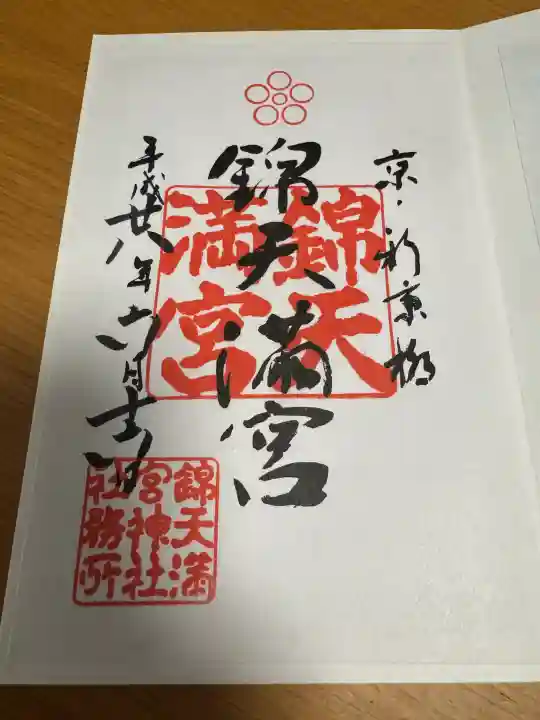 京・新京極
錦天満宮
錦天
満宮
平成廿八年六月
錦天満
宮神社
社務所